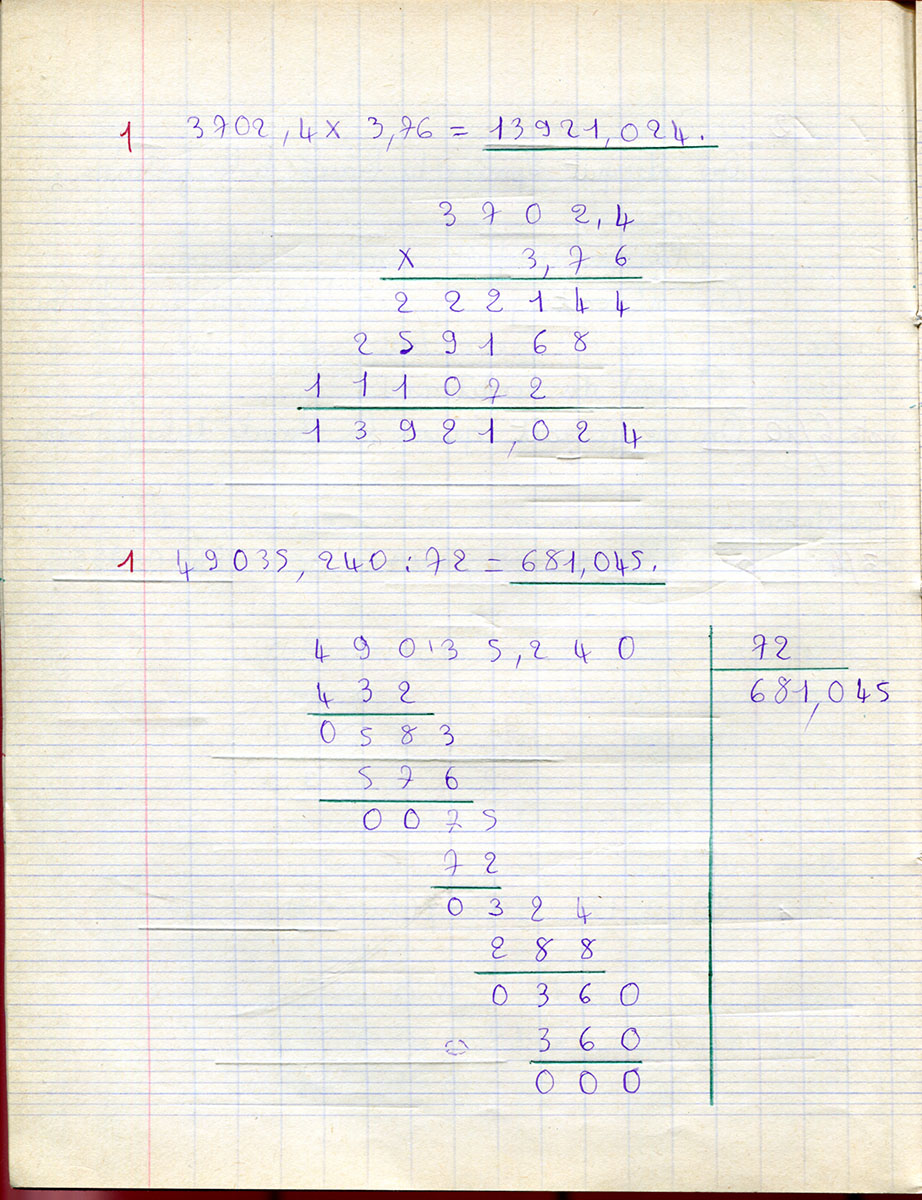 1 3702,4 x 3,76 = 13921,024.
3 7 0 2,4
x 3,7 6
2 2 2 1 4 4
2 5 9 1 6 8
1 1 1 0 7 2
1 3 9 2 1,0 2 4
1 49035,240 : 72 = 681,045.
4 9 0'3 5,2 4 0 72
4 3 2 681,045
0 5 8 3
5 7 6
0 0 7 5
7 2
0 3 2 4
2 8 8
0 3 6 0
3 6 0
0 0 0